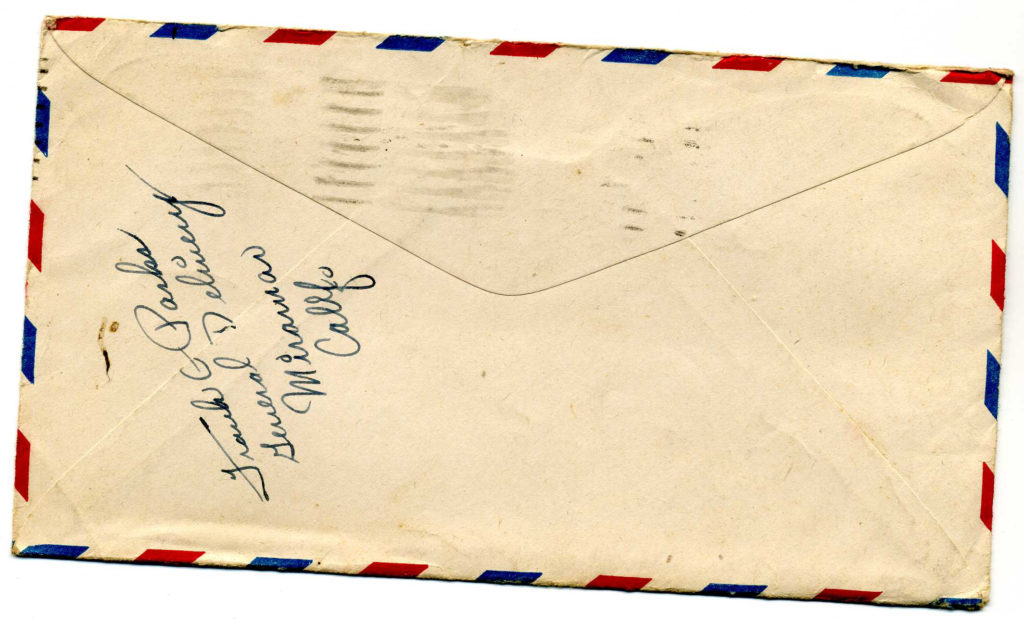 Frank C Parks
General Delivery
Miramar
Calif.